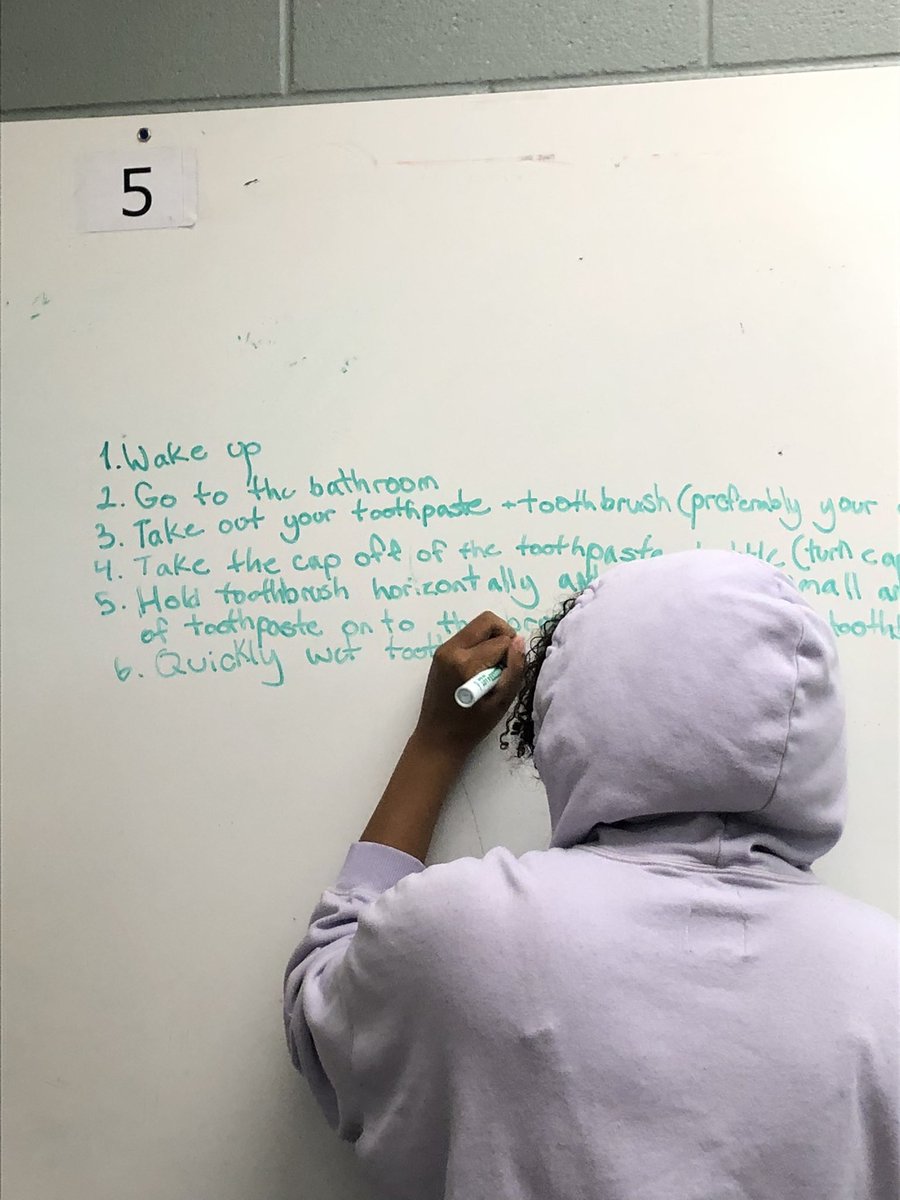 5
1. Wake up
2. Go to the bathroom
3. Take out your toothpaste + toothbrush (preferably your
4. Take the cap off of the toothpaste (turn cap
5. Hold toothbrush horizontally small
of toothpaste onto the
6. Quickly wet